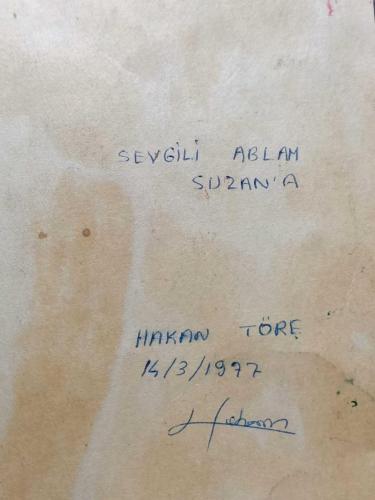 SEVGİLİ ABLAM
SUZAN'A
HAKAN TÖRE
14/3/1997
Hakan